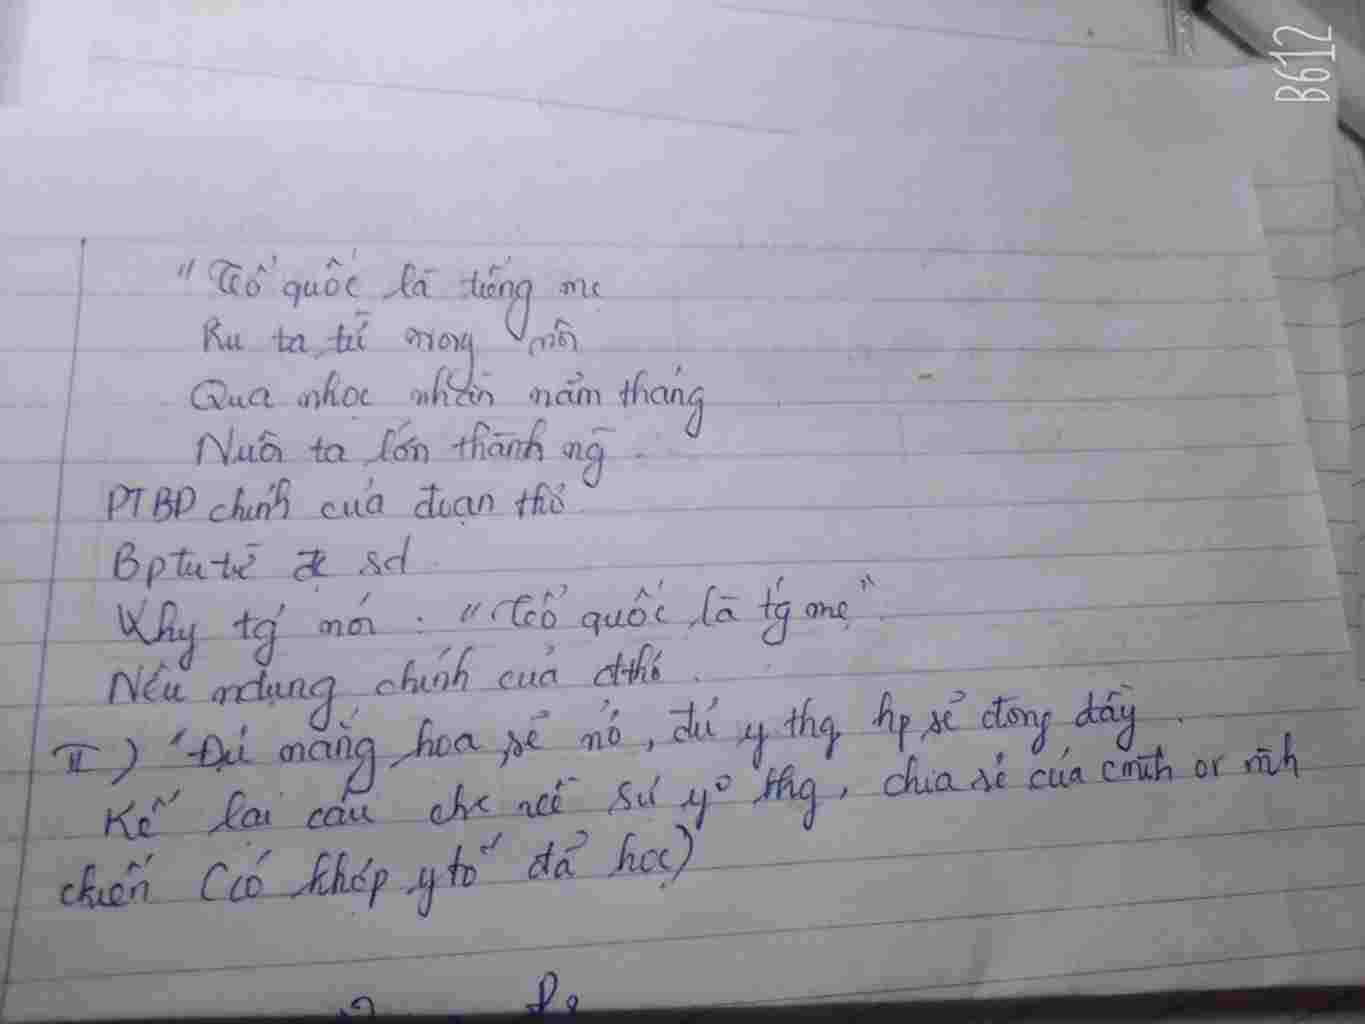 "Tổ quốc là tiếng mẹ
Ru ta từ trong nôi
Qua nhọc nhằn năm tháng
Nuôi ta lớn thành ng̃
PTBĐ chính của đoạn thơ
Bp tu từ đc sd
Why tg nói : "Tổ quốc là tg mẹ"
Nêu ndung chính của đthơ
II) "Đủ nắng hoa sẽ nở, đủ y thg hp sẽ đong đầy
Kể lại câu ch về sự y thg, chia sẻ của cmình or mình
chkiến (có khớp ytố đã học)
B612